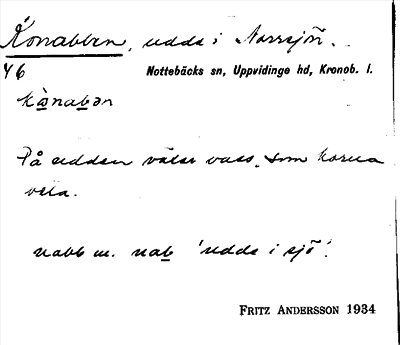 Konabben, udde i Norrsjön.
46 Nottebäcks sn, Uppvidinge hd, Kronob. l.
kònabən
På udden växer vass, som korna
veta.
nabb m. nab 'udde i sjö'.
FRITZ ANDERSSON 1934